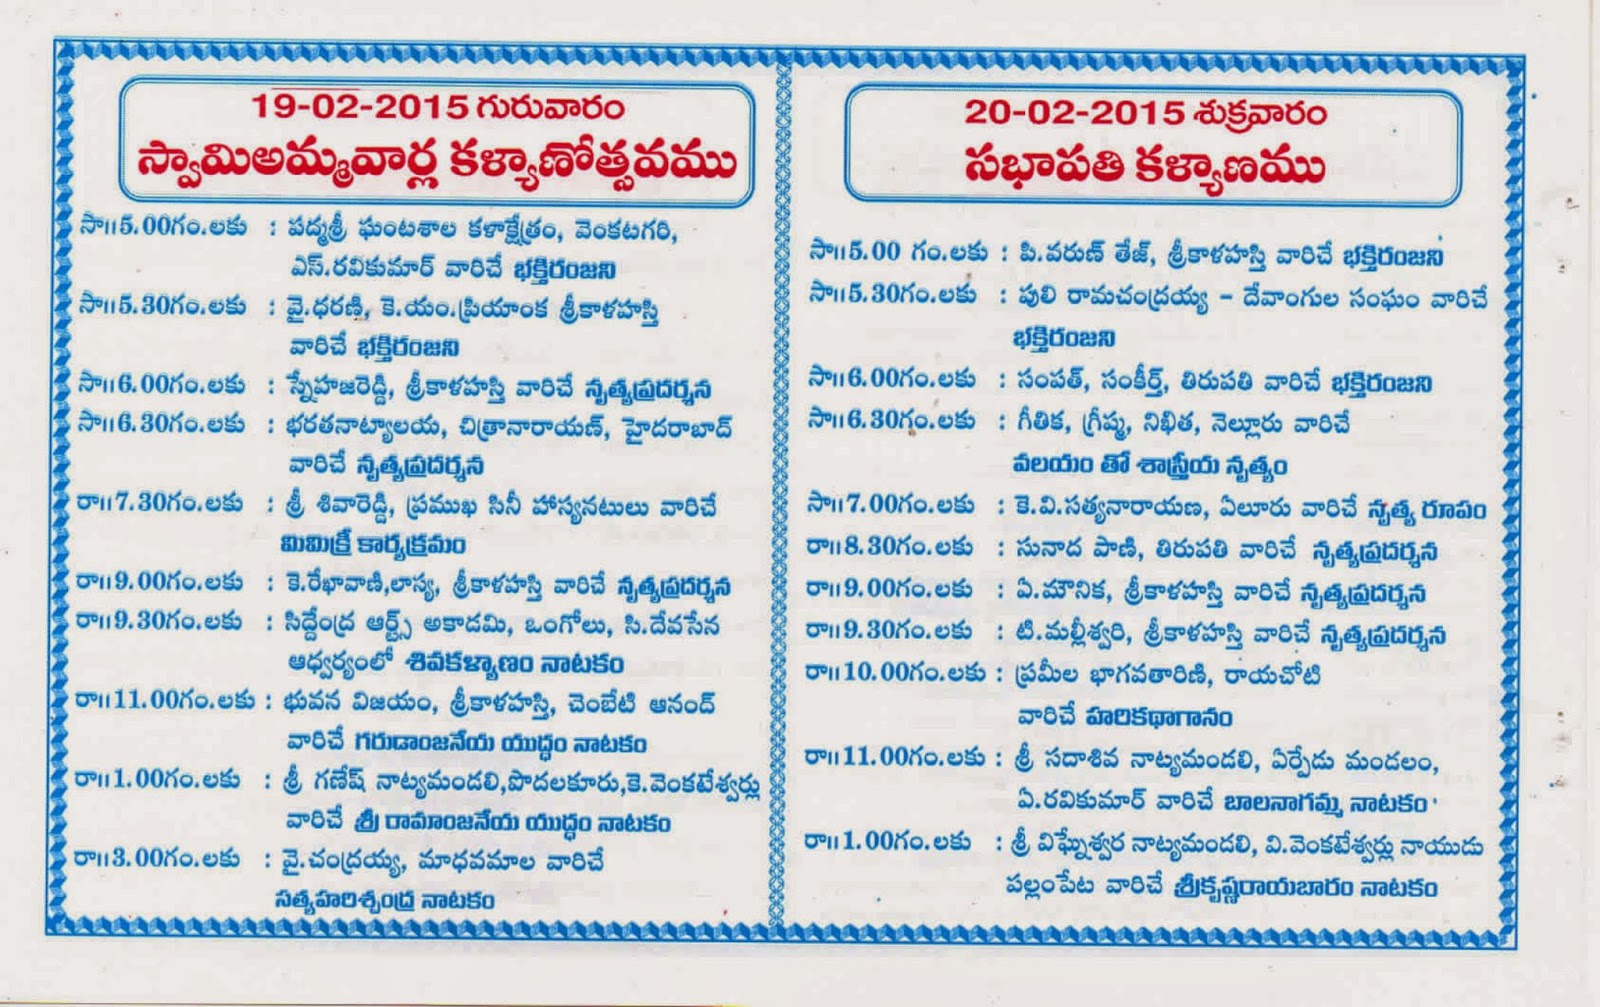 19-02-2015 గురువారం
స్వామిఅమ్మవార్ల కళ్యాణోత్సవము
సా॥5.00గం.లకు : పద్మశ్రీ ఘంటశాల కళాక్షేత్రం, వెంకటగరి,
ఎస్.రవికుమార్ వారిచే భక్తిరంజని
సా॥5.30గం.లకు : వై.ధరణి, కె.యం.ప్రియాంక శ్రీకాళహస్తి
వారిచే భక్తిరంజని
సా॥6.00గం.లకు : స్నేహజరెడ్డి, శ్రీకాళహస్తి వారిచే నృత్యప్రదర్శన
సా॥6.30గం.లకు : భరతనాట్యాలయ, చిత్రానారాయణ్, హైదరాబాద్
వారిచే నృత్యప్రదర్శన
రా॥7.30గం.లకు : శ్రీ శివారెడ్డి, ప్రముఖ సినీ హాస్యనటులు వారిచే
మిమిక్రీ కార్యక్రమం
రా॥9.00గం.లకు : కె.రేఖావాణి,లాస్య, శ్రీకాళహస్తి వారిచే నృత్యప్రదర్శన
రా॥9.30గం.లకు : సిద్దేంద్ర ఆర్ట్స్ అకాడమి, ఒంగోలు, సి.దేవసేన
ఆధ్వర్యంలో శివకళ్యాణం నాటకం
రా॥11.00గం.లకు : భువన విజయం, శ్రీకాళహస్తి, చెంబేటి ఆనంద్
వారిచే గరుడాంజనేయ యుద్ధం నాటకం
రా॥1.00గం.లకు : శ్రీ గణేష్ నాట్యమండలి,పొదలకూరు,కె.వెంకటేశ్వర్లు
వారిచే శ్రీ రామాంజనేయ యుద్ధం నాటకం
రా॥3.00గం.లకు : వై.చంద్రయ్య, మాధవమాల వారిచే
సత్యహరిశ్చంద్ర నాటకం
20-02-2015 శుక్రవారం
సభాపతి కళ్యాణము
సా॥5.00 గం.లకు : పి.వరుణ్ తేజ్, శ్రీకాళహస్తి వారిచే భక్తిరంజని
సా॥5.30గం.లకు : పులి రామచంద్రయ్య – దేవాంగుల సంఘం వారిచే
భక్తిరంజని
సా॥6.00గం.లకు : సంపత్, సంకీర్త్, తిరుపతి వారిచే భక్తిరంజని
సా॥6.30గం.లకు : గీతిక, గ్రీష్మ, నిఖిత, నెల్లూరు వారిచే
వలయం తో శాస్త్రీయ నృత్యం
సా॥7.00గం.లకు : కె.వి.సత్యనారాయణ, ఏలూరు వారిచే నృత్య రూపం
రా॥8.30గం.లకు : సునాద పాణి, తిరుపతి వారిచే నృత్యప్రదర్శన
రా॥9.00గం.లకు : ఏ.మౌనిక, శ్రీకాళహస్తి వారిచే నృత్యప్రదర్శన
రా॥9.30గం.లకు : టి.మల్లీశ్వరి, శ్రీకాళహస్తి వారిచే నృత్యప్రదర్శన
రా॥10.00గం.లకు : ప్రమీల భాగవతారిణి, రాయచోటి
వారిచే హరికథాగానం
రా॥11.00గం.లకు : శ్రీ సదాశివ నాట్యమండలి, ఏర్పేడు మండలం,
ఏ.రవికుమార్ వారిచే బాలనాగమ్మ నాటకం
రా॥1.00గం.లకు : శ్రీ విఘ్నేశ్వర నాట్యమండలి, వి.వెంకటేశ్వర్లు నాయుడు
పల్లంపేట వారిచే శ్రీకృష్ణరాయబారం నాటకం